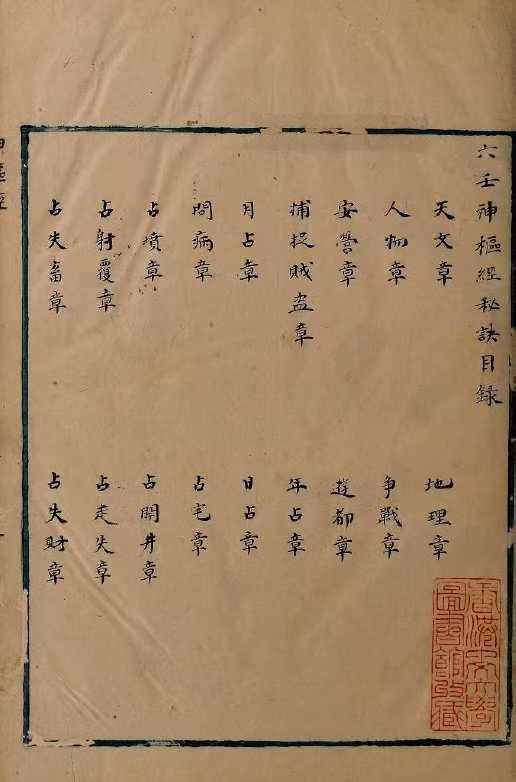 六壬神樞經秘訣目録
天文章
地理章
人物章
争戰章
安營章
遊都章
捕捉賊盗章
年占章
月占章
日占章
問病章
占宅章
占墳章
占開井章
占射覆章
占走失章
占失畜章
占失財章
神樞經
香港大學
圖書館收藏